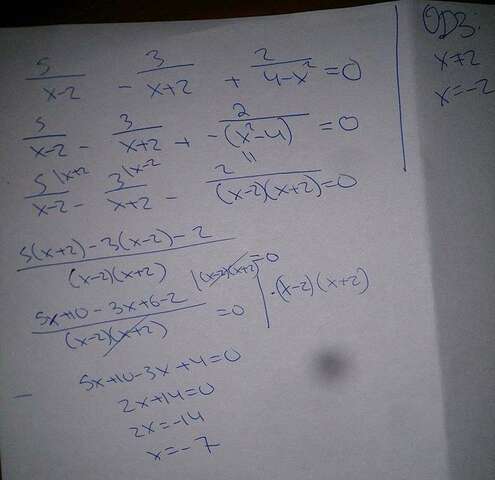 5/(x-2) - 3/(x+2) + 2/(4-x²) = 0
5/(x-2) - 3/(x+2) + 2/(-(x²-4)) = 0
5|x+2/(x-2) - 3|x-2/(x+2) - 2/((x-2)(x+2)) = 0
(5(x+2)-3(x-2)-2)/((x-2)(x+2)) = 0
(5x+10-3x+6-2)/((x-2)(x+2)) = 0 | ·(x-2)(x+2)
5x+10-3x+4=0
2x+14=0
2x=-14
x=-7
ODZ:
x+2
x=-2